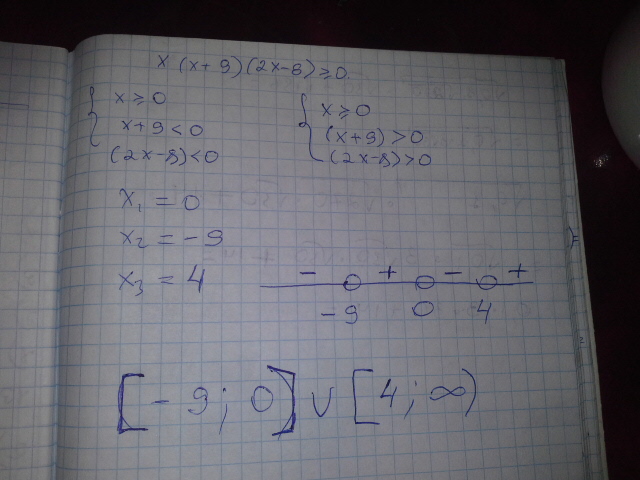 x (x+9)(2x-8)≥0.
{ x≥0
x+9<0
(2x-8)<0
{ x≥0
(x+9)>0
(2x-8)>0
x₁ = 0
x₂ = -9
x₃ = 4
- + - +
-9 0 4
[-9; 0] ∪ [4; ∞)